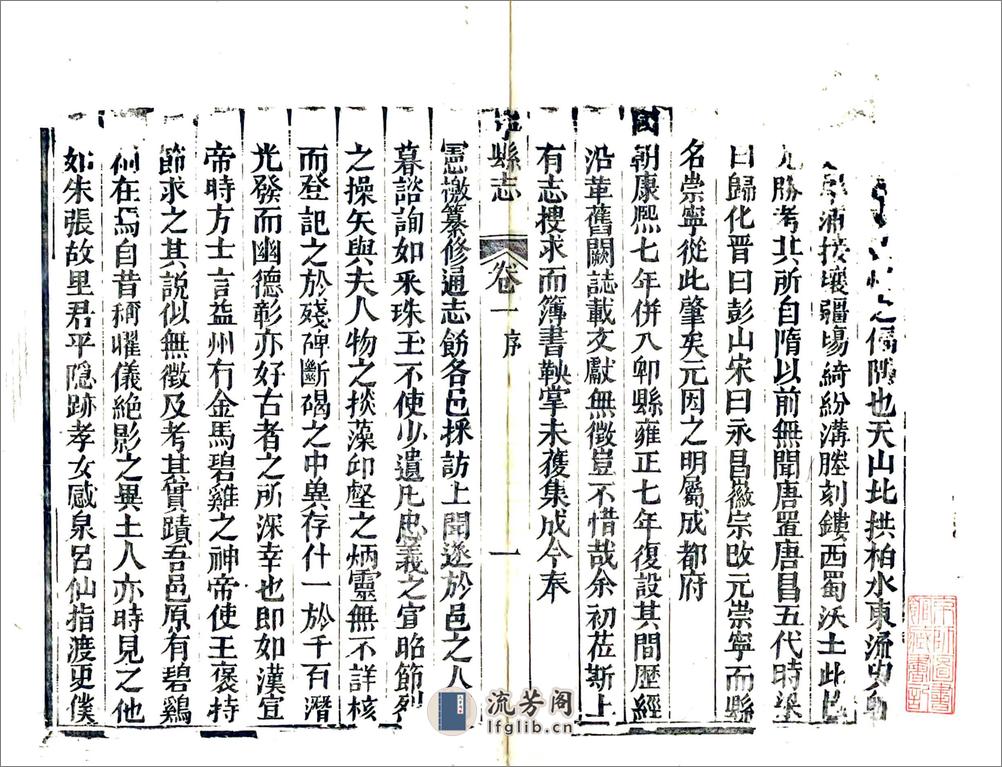 之偏隅也天山北拱柏水東流
接壤疆場綺紛溝塍刻鏤西蜀沃土此
勝考其所自隋以前無聞唐置唐昌五代時梁
曰歸化晋曰彭山宋曰永昌徽宗改元崇寧而縣
名崇寧從此肇矣元因之明屬成都府
國朝康熙七年併入郫縣雍正七年復設其間歷經
沿革舊闕誌載文獻無徵豈不惜哉余初莅斯土
有志搜求而簿書鞅掌未獲集成今奉
寧縣志 卷一 序 一
憲檄纂修通志飭各邑採訪上聞遂於邑之人
暮諮詢如采珠玉不使少遺凡忠義之官昭節烈
之操矢與夫人物之掞藻邱壑之炳靈無不詳核
而登記之於殘碑斷碣之中兾存什一於千百潛
光發而幽德彰亦好古者之所深幸也即如漢宣
帝時方士言益州有金馬碧雞之神帝使王褒持
節求之其說似無徵及考其實蹟吾邑原有碧鷄
祠在焉自昔稱曜儀絶影之異土人亦時見之他
如朱張故里君平隠跡孝女感泉呂仙指渡更僕
流芳阁
lfglib.cn